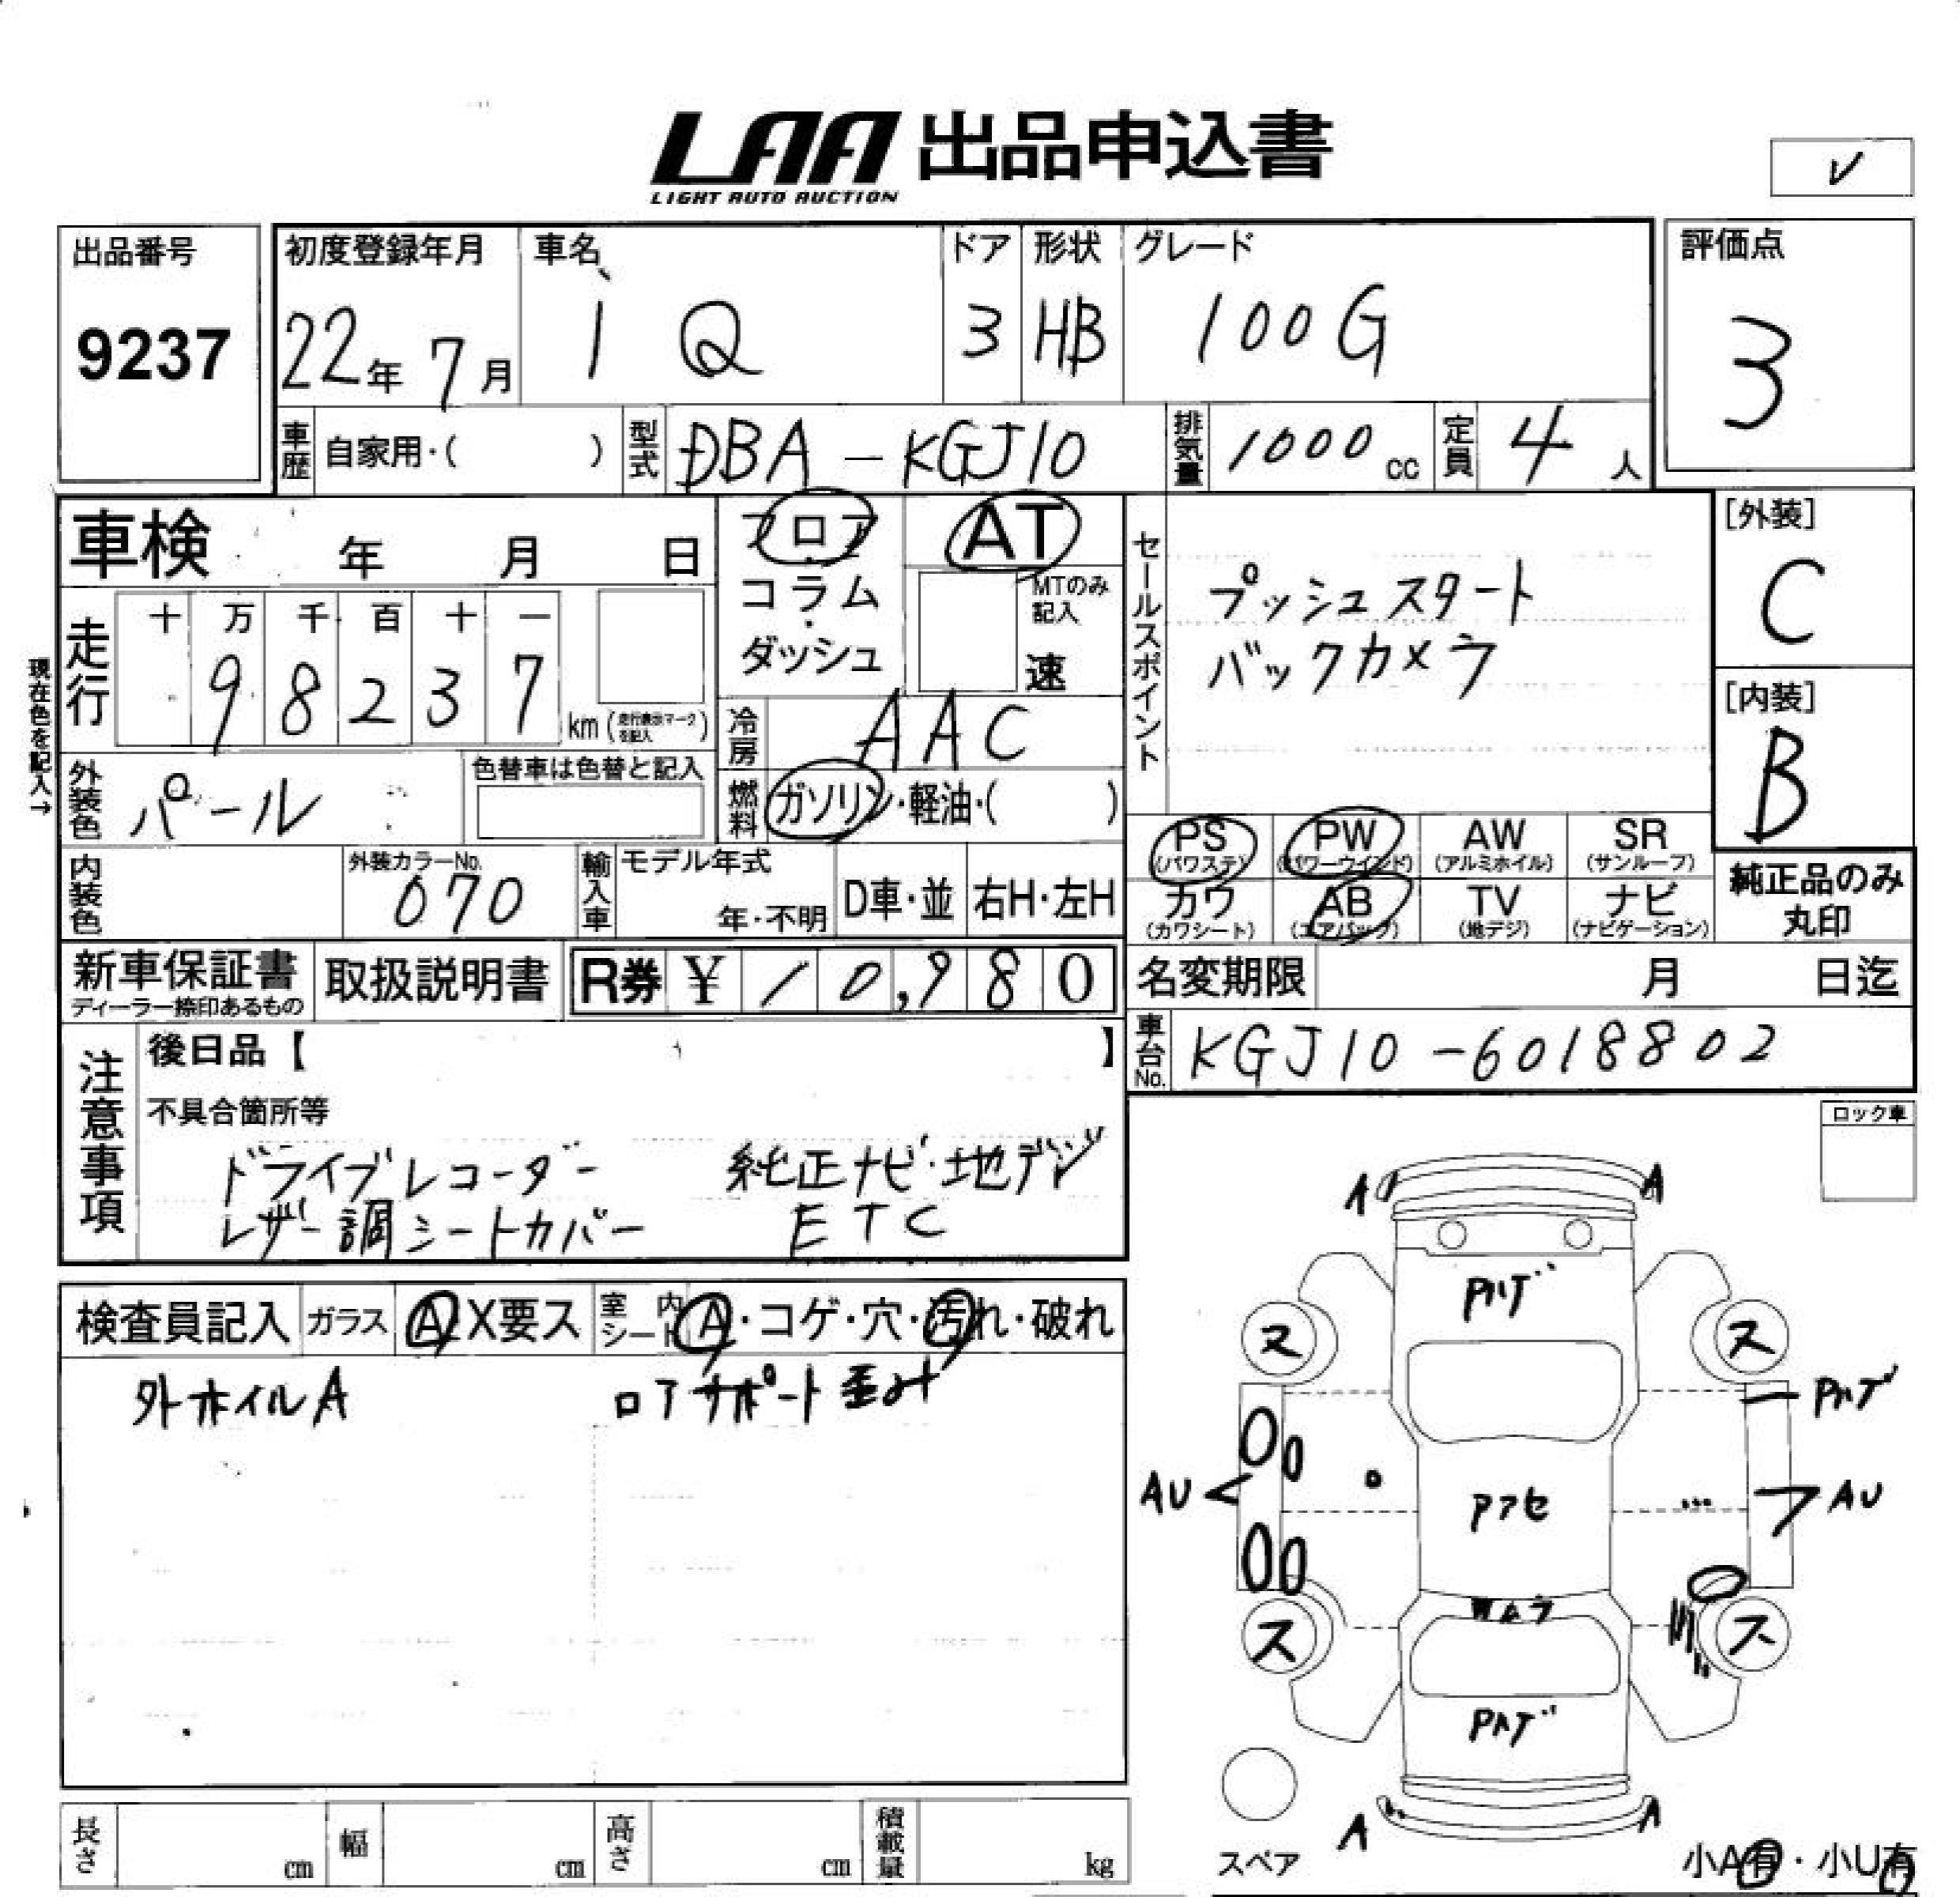 LAA 出品申込書
LIGHT AUTO AUCTION
出品番号
9237
初度登録年月
22年 7月
車名
i Q
ドア
3
形状
HB
グレード
100G
評価点
3
車歴 自家用・( )
型式 DBA-KGJ10
排気量 1000 cc
定員 4 人
車検 年 月 日
フロア
コラム
ダッシュ
AT
MTのみ
記入
速
セールスポイント
プッシュスタート
バックカメラ
[外装]
C
[内装]
B
現在色を記入→
走行
十 万 千 百 十 一
9 8 2 3 7
km(走行表示マークを記入)
冷房 AAC
外装色 パール
色替車は色替と記入
燃料 ガソリン・軽油・( )
PS (パワステ)
PW (パワーウインド)
AW (アルミホイル)
SR (サンルーフ)
カワ (カワシート)
AB (エアバック)
TV (地デジ)
ナビ (ナビゲーション)
純正品のみ
丸印
内装色
外装カラーNo.
070
輸入車
モデル年式
年・不明
D車・並
右H・左H
新車保証書
ディーラー捺印あるもの
取扱説明書
R券 ¥ 10,980
名変期限 月 日迄
車台No. KGJ10-6018802
注意事項
後日品【 】
不具合箇所等
ドライブレコーダー 純正ナビ・地デジ
レザー調シートカバー ETC
ロック車
検査員記入 ガラス A X要ス 室内シート A・コゲ・穴・汚れ・破れ
外ホイルA ロアサポート歪み
A A
ヌ ス
AU AU
Pアセ
Wムラ
ス ス
A A
スペア
小A有・小U有
長さ cm
幅 cm
高さ cm
積載量 kg